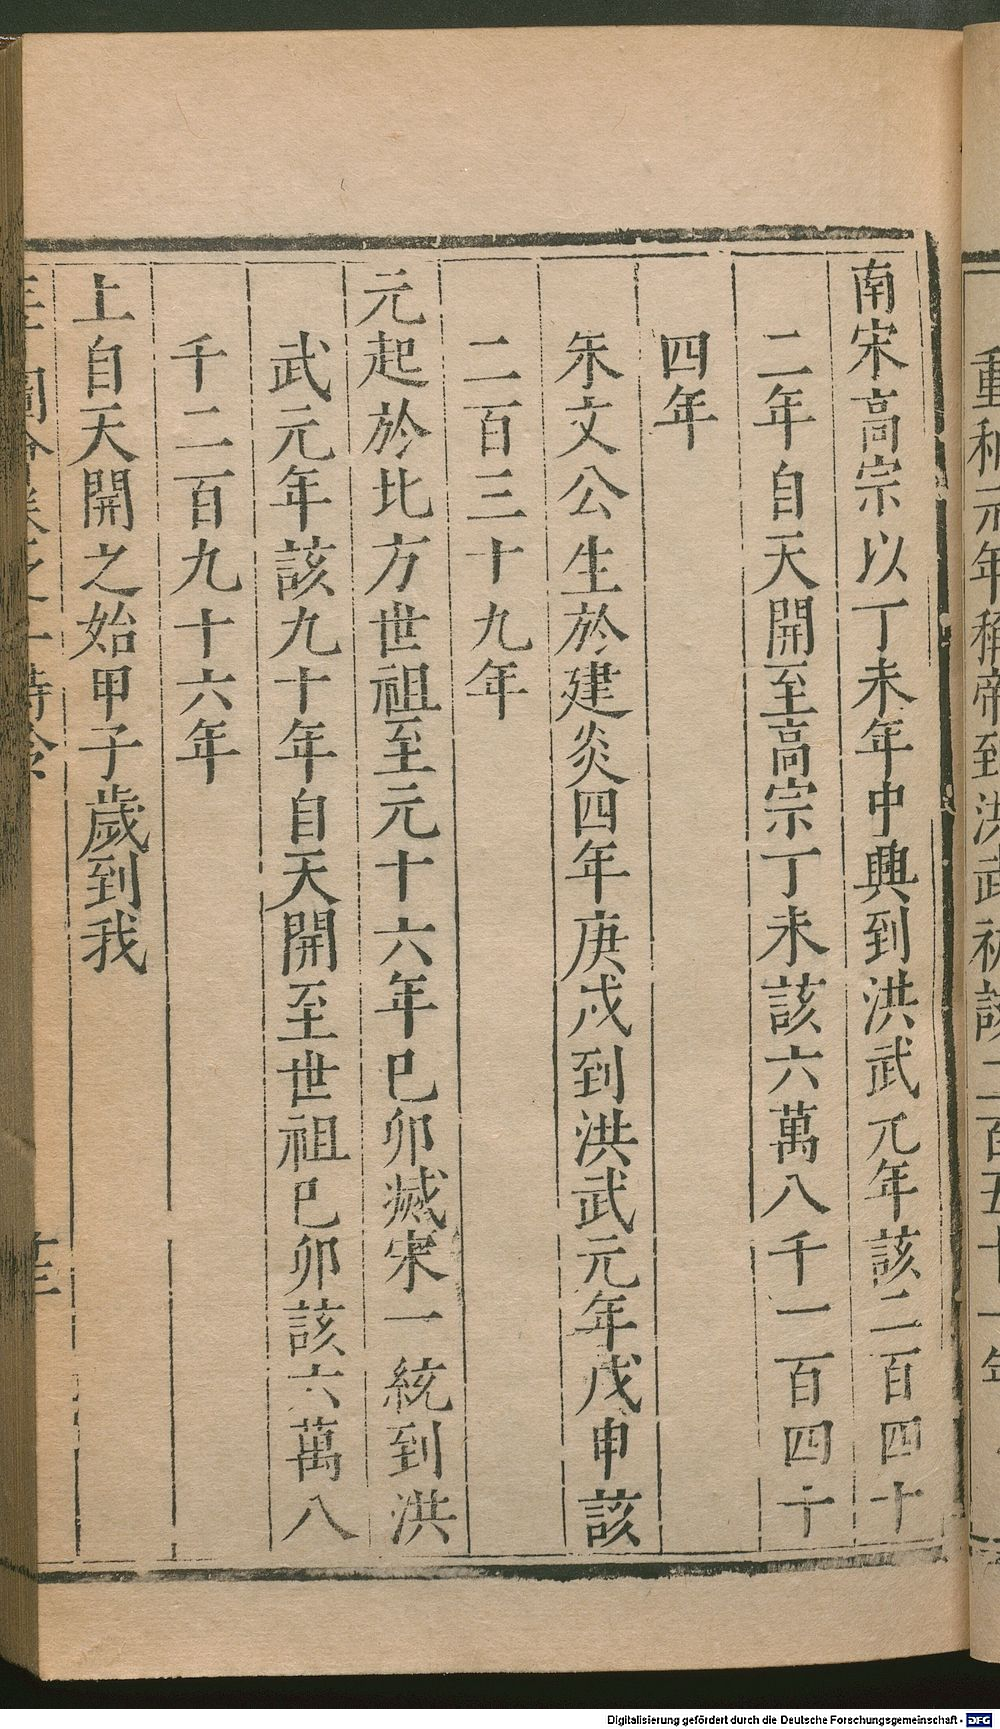 重和元年稱帝到洪武初該二百五十一年
南宋高宗以丁未年中興到洪武元年該二百四十
二年自天開至高宗丁未該六萬八千一百四十
四年
朱文公生於建炎四年庚戌到洪武元年戊申該
二百三十九年
元起於北方世祖至元十六年巳卯滅宋一統到洪
武元年該九十年自天開至世祖巳卯該六萬八
千二百九十六年
上自天開之始甲子歲到我
圖會
卷之一時令
十三
Digitalisierung gefördert durch die Deutsche Forschungsgemeinschaft - DFG